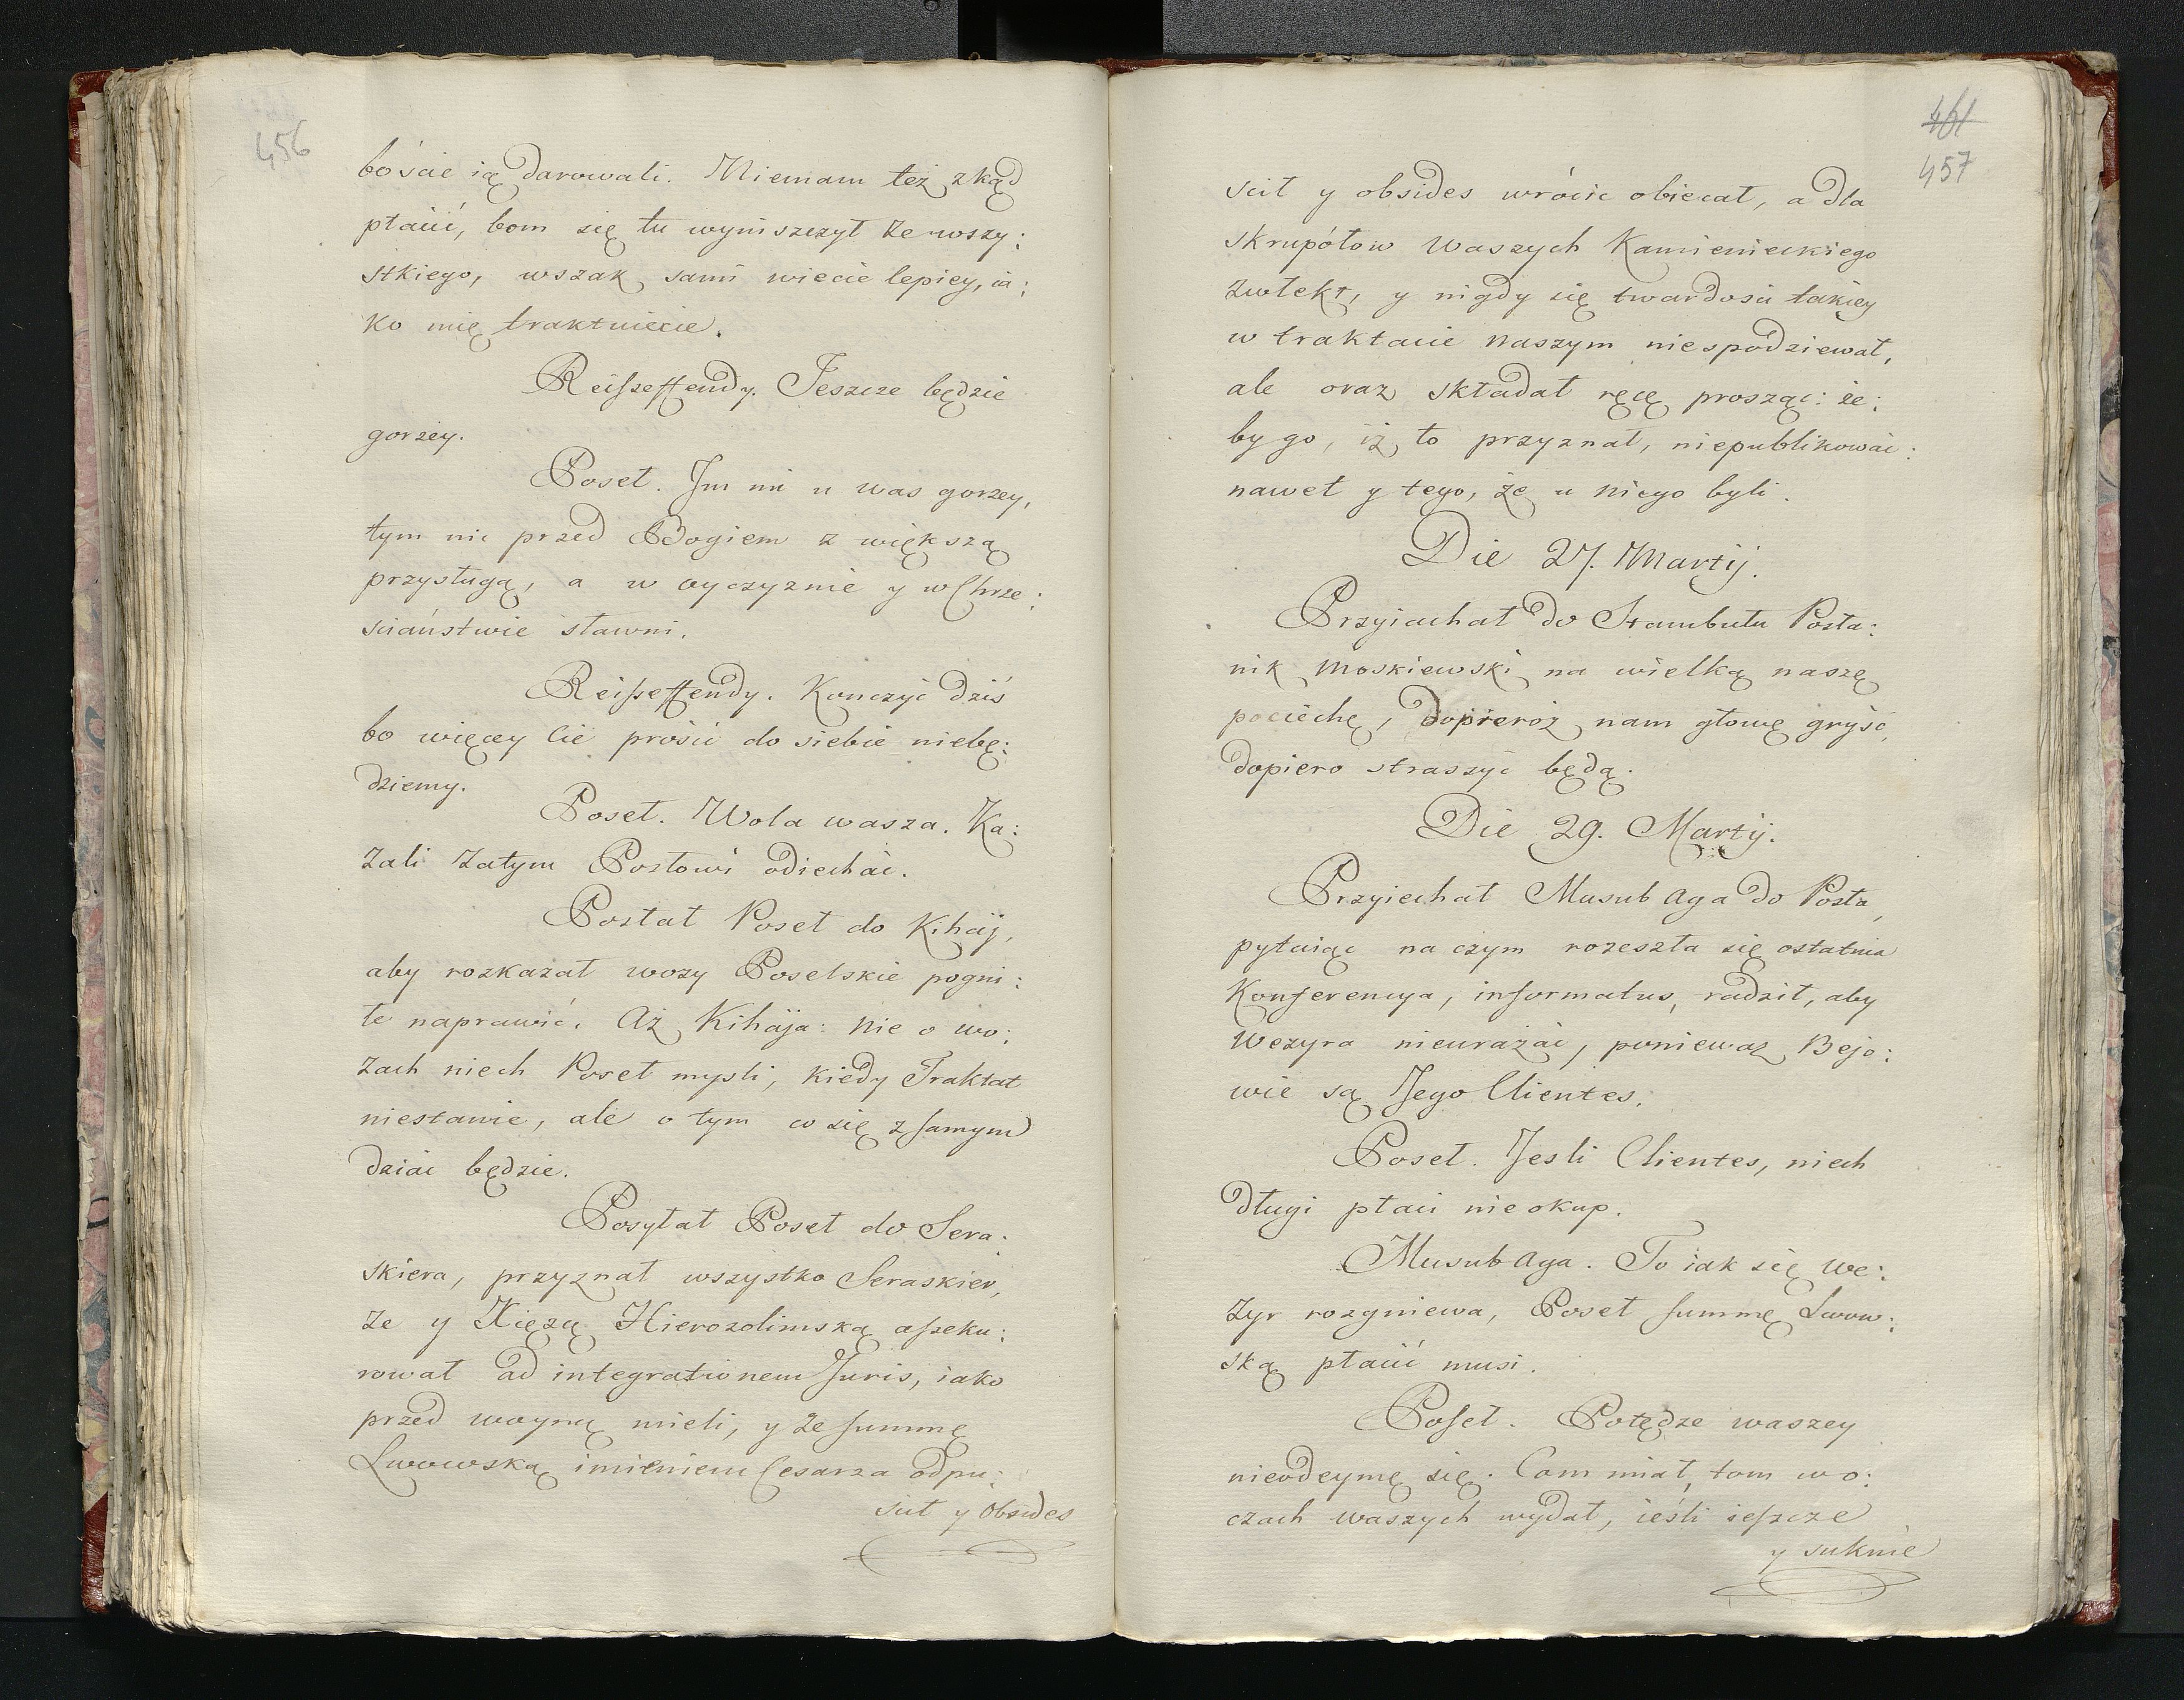 456
bośćie ią darowali. Niemam też zkąd
płaćić, bom się tu wyniszczył ze wszy:
stkiego, wszak sami wiecie lepiey, ia:
ko mię traktuiecie.
Reisseffendy. Jeszcze będzie
gorzey.
Poseł. Im mi u was gorzey,
tym mi przed Bogiem z większą
przysługą, a w oyczyznie y w Chrze:
sciaństwie sławni.
Reisseffendy. Kończyć dziś
bo więcey Cie prosić do siebie niebę:
dziemy.
Poseł. Wola wasza. Ka:
zali zatym Posłowi odiechać.
Posłał Poseł do Kihaij,
aby rozkazał wozy Poselskie pogni:
łe naprawić. Aż Kihaija: nie o wo:
zach niech Poseł mysli, kiedy Traktat
niestanie, ale o tym co się z samym
dziać będzie.
Posyłał Poseł do Sera:
skiera, przyznał wszystko Seraskier,
że y Xięzą Hierozolimską asseku:
rował ad integrationem Juris, iako
przed woyną mieli, y że summę
Lwowską imieniem Cesarza odpu:
scił y Obsides
461
457
scił y obsides wrócić obiecał, a dla
skrupółow waszych Kamienieckiego
zwlekł, y nigdy się twardości takiey
w traktacie naszym niespodziewał,
ale oraz składał ręcę prosząc: że:
by go, iż to przyznał, niepublikować:
nawet y tego, że u niego byli.
Die 27. Martij.
Przyiachał do Stambułu Posła:
nik Moskiewski na wielką naszę
pociechę, dopieroż nam głowę gryść,
dopiero straszyć będą.
Die 29. Martij.
Przyiechał Musub Aga do Posła,
pytaiąc na czym rozeszła się ostatnia
Konferencya, informatus, radził, aby
Wezyra nieurażać, ponieważ Bejo:
wie są Jego Clientes.
Poseł. Jesli Clientes, niech
długi płaci nie okup.
Musub Aga. To iak się We:
zyr rozgniewa, Poseł summę Lwow:
ską płaćić musi.
Poseł. Potędze waszey
nieodeymę się. Com miał, tom w o:
czach waszych wydał, ieśli ieszcze
y suknie